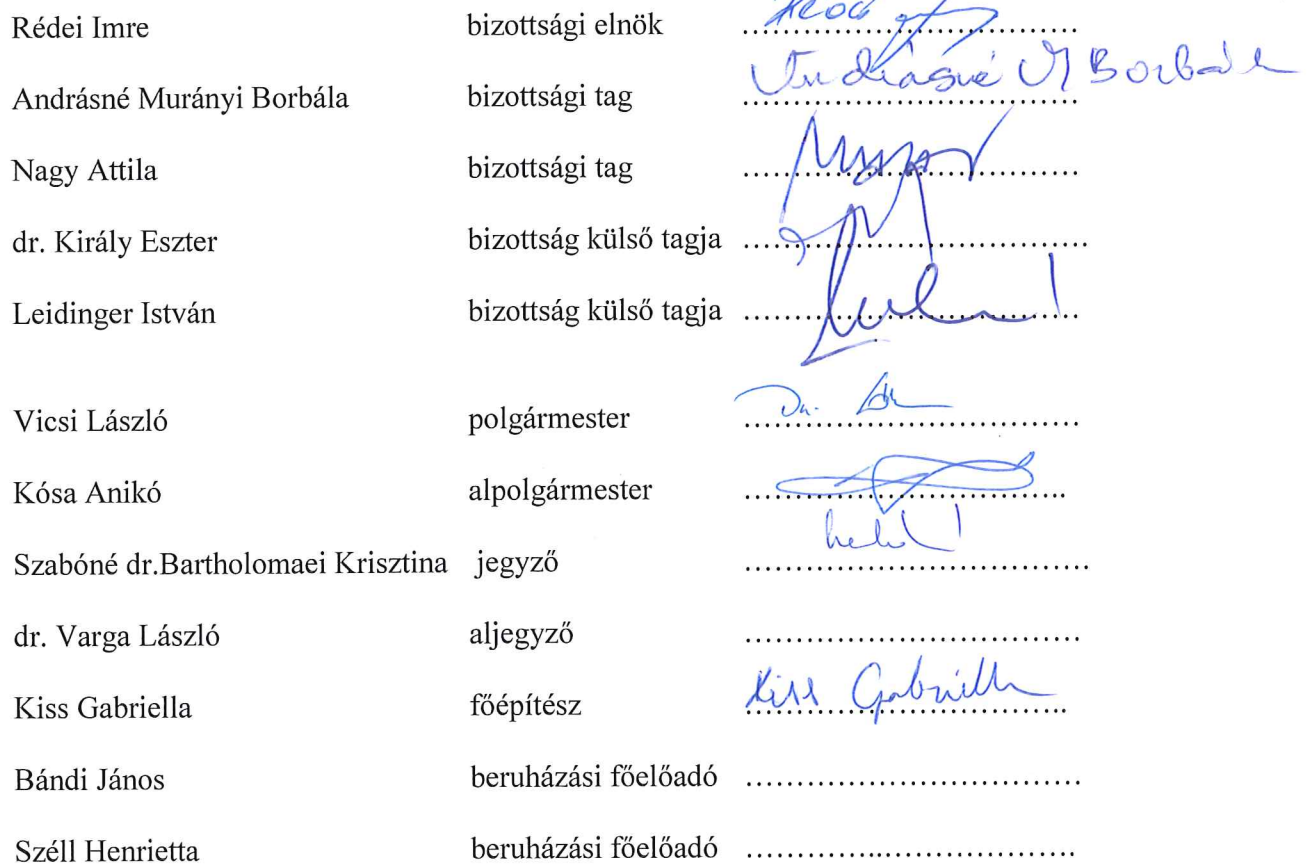 Rédei Imre bizottsági elnök ........................................
Andrásné Murányi Borbála bizottsági tag ........................................ Andrásné M Borbála
Nagy Attila bizottsági tag ........................................
dr. Király Eszter bizottság külső tagja ........................................
Leidinger István bizottság külső tagja ........................................
Vicsi László polgármester ........................................
Kósa Anikó alpolgármester ........................................
Szabóné dr.Bartholomaei Krisztina jegyző ........................................
dr. Varga László aljegyző ........................................
Kiss Gabriella főépítész ........................................ Kiss Gabriella
Bándi János beruházási főelőadó ........................................
Széll Henrietta beruházási főelőadó ........................................